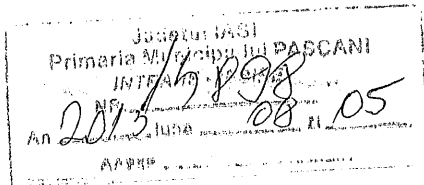 Judetul IASI
Primaria Municipiului PASCANI
INTRARE
NR. 15898
An 2013 luna 08 zi 05